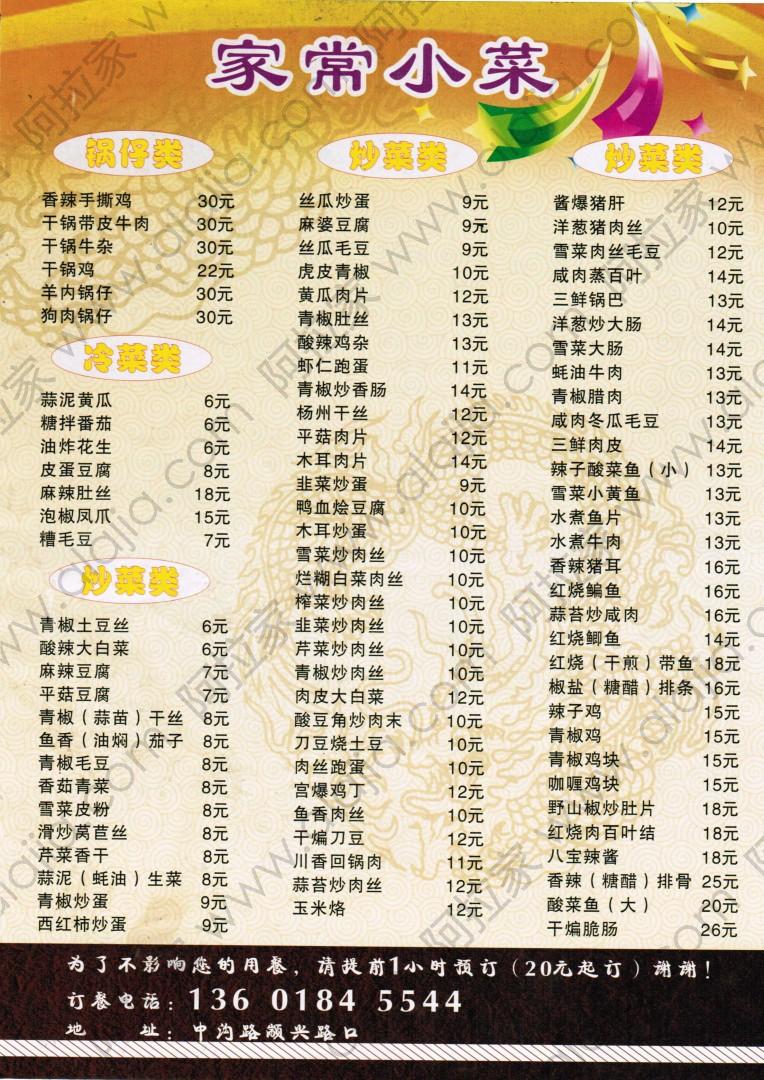 家常小菜
锅仔类
香辣手撕鸡 30元
干锅带皮牛肉 30元
干锅牛杂 30元
干锅鸡 22元
羊内锅仔 30元
狗肉锅仔 30元
冷菜类
蒜泥黄瓜 6元
糖拌番茄 6元
油炸花生 6元
皮蛋豆腐 8元
麻辣肚丝 18元
泡椒凤爪 15元
糟毛豆 7元
炒菜类
青椒土豆丝 6元
酸辣大白菜 6元
麻辣豆腐 7元
平菇豆腐 7元
青椒（蒜苗）干丝 8元
鱼香（油焖）茄子 8元
青椒毛豆 8元
香茹青菜 8元
雪菜皮粉 8元
滑炒莴苣丝 8元
芹菜香干 8元
蒜泥（蚝油）生菜 8元
青椒炒蛋 9元
西红柿炒蛋 9元
炒菜类
丝瓜炒蛋 9元
麻婆豆腐 9元
丝瓜毛豆 9元
虎皮青椒 10元
黄瓜肉片 12元
青椒肚丝 13元
酸辣鸡杂 13元
虾仁跑蛋 11元
青椒炒香肠 14元
杨州干丝 12元
平菇肉片 12元
木耳肉片 14元
韭菜炒蛋 9元
鸭血烩豆腐 10元
木耳炒蛋 10元
雪菜炒肉丝 10元
烂糊白菜肉丝 10元
榨菜炒肉丝 10元
韭菜炒肉丝 10元
芹菜炒肉丝 10元
青椒炒肉丝 10元
肉皮大白菜 12元
酸豆角炒肉末 10元
刀豆烧土豆 10元
肉丝跑蛋 10元
宫爆鸡丁 12元
鱼香肉丝 10元
干煸刀豆 12元
川香回锅肉 11元
蒜苔炒肉丝 12元
玉米烙 12元
炒菜类
酱爆猪肝 12元
洋葱猪肉丝 10元
雪菜肉丝毛豆 12元
咸肉蒸百叶 14元
三鲜锅巴 13元
洋葱炒大肠 14元
雪菜大肠 14元
蚝油牛肉 13元
青椒腊肉 13元
咸肉冬瓜毛豆 13元
三鲜肉皮 14元
辣子酸菜鱼（小） 13元
雪菜小黄鱼 13元
水煮鱼片 13元
水煮牛肉 13元
香辣猪耳 16元
红烧鳊鱼 16元
蒜苔炒咸肉 16元
红烧鲫鱼 14元
红烧（干煎）带鱼 18元
椒盐（糖醋）排条 16元
辣子鸡 15元
青椒鸡 15元
青椒鸡块 15元
咖喱鸡块 15元
野山椒炒肚片 18元
红烧肉百叶结 18元
八宝辣酱 18元
香辣（糖醋）排骨 25元
酸菜鱼（大） 20元
干煸脆肠 26元
为了不影响您的用餐，请提前1小时预订（20元起订）谢谢！
订餐电话：136 0184 5544
地 址：中沟路颛兴路口
阿拉家 www.alajia.com